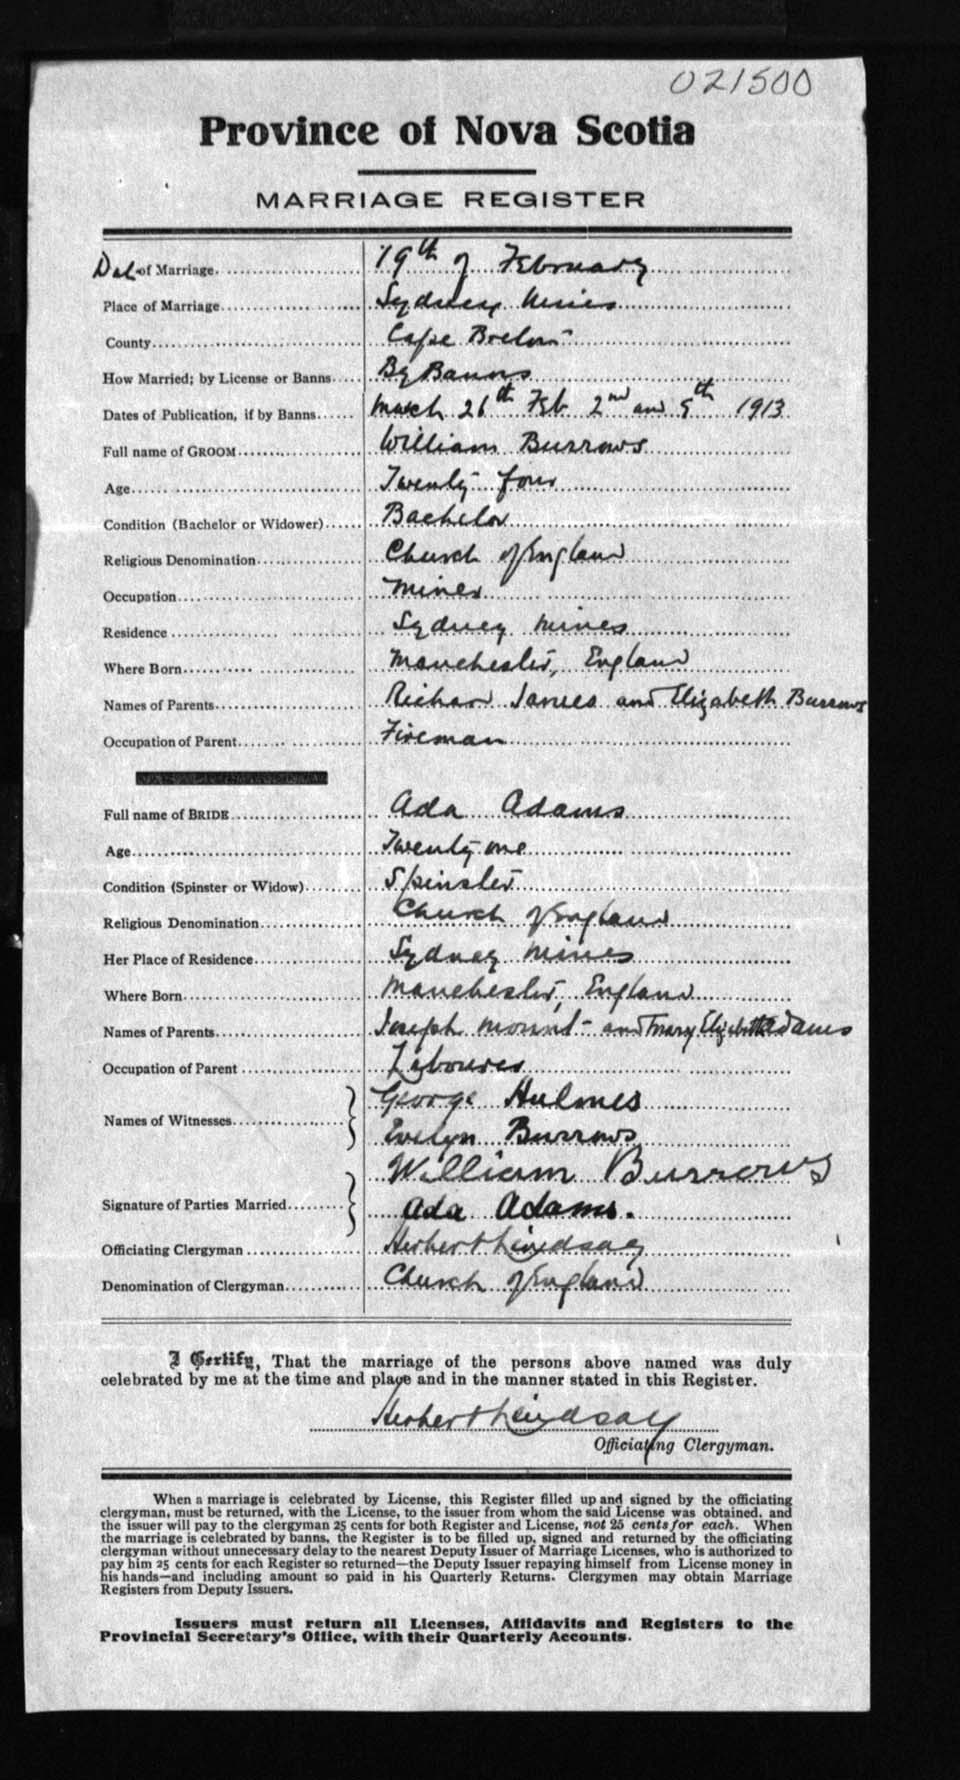 021500
Province of Nova Scotia
MARRIAGE REGISTER
Date of Marriage. 19th of February
Place of Marriage Sydney Mines
County Cape Breton
How Married; by License or Banns By Banns
Dates of Publication, if by Banns March 26th Feb 2nd and 9th 1913
Full name of GROOM William Burrows
Age Twenty four
Condition (Bachelor or Widower) Bachelor
Religious Denomination Church of England
Occupation Miner
Residence Sydney Mines
Where Born Manchester, England
Names of Parents Richard James and Elizabeth Burrows
Occupation of Parent Fireman
Full name of BRIDE Ada Adams
Age Twenty one
Condition (Spinster or Widow) Spinster
Religious Denomination Church of England
Her Place of Residence Sydney Mines
Where Born Manchester, England
Names of Parents Joseph Mount and Mary Elizabeth Adams
Occupation of Parent Labourer
Names of Witnesses George Hulmes
Evelyn Burrows
William Burrows
Signature of Parties Married Ada Adams.
Officiating Clergyman Herbert Lindsay
Denomination of Clergyman Church of England
I Certify, That the marriage of the persons above named was duly
celebrated by me at the time and place and in the manner stated in this Register.
Herbert Lindsay
Officiating Clergyman.
When a marriage is celebrated by License, this Register filled up and signed by the officiating
clergyman, must be returned, with the License, to the issuer from whom the said License was obtained, and
the issuer will pay to the clergyman 25 cents for both Register and License, not 25 cents for each. When
the marriage is celebrated by banns, the Register is to be filled up, signed and returned by the officiating
clergyman without unnecessary delay to the nearest Deputy Issuer of Marriage Licenses, who is authorized to
pay him 25 cents for each Register so returned—the Deputy Issuer repaying himself from License money in
his hands—and including amount so paid in his Quarterly Returns. Clergymen may obtain Marriage
Registers from Deputy Issuers.
Issuers must return all Licenses, Affidavits and Registers to the
Provincial Secretary's Office, with their Quarterly Accounts.